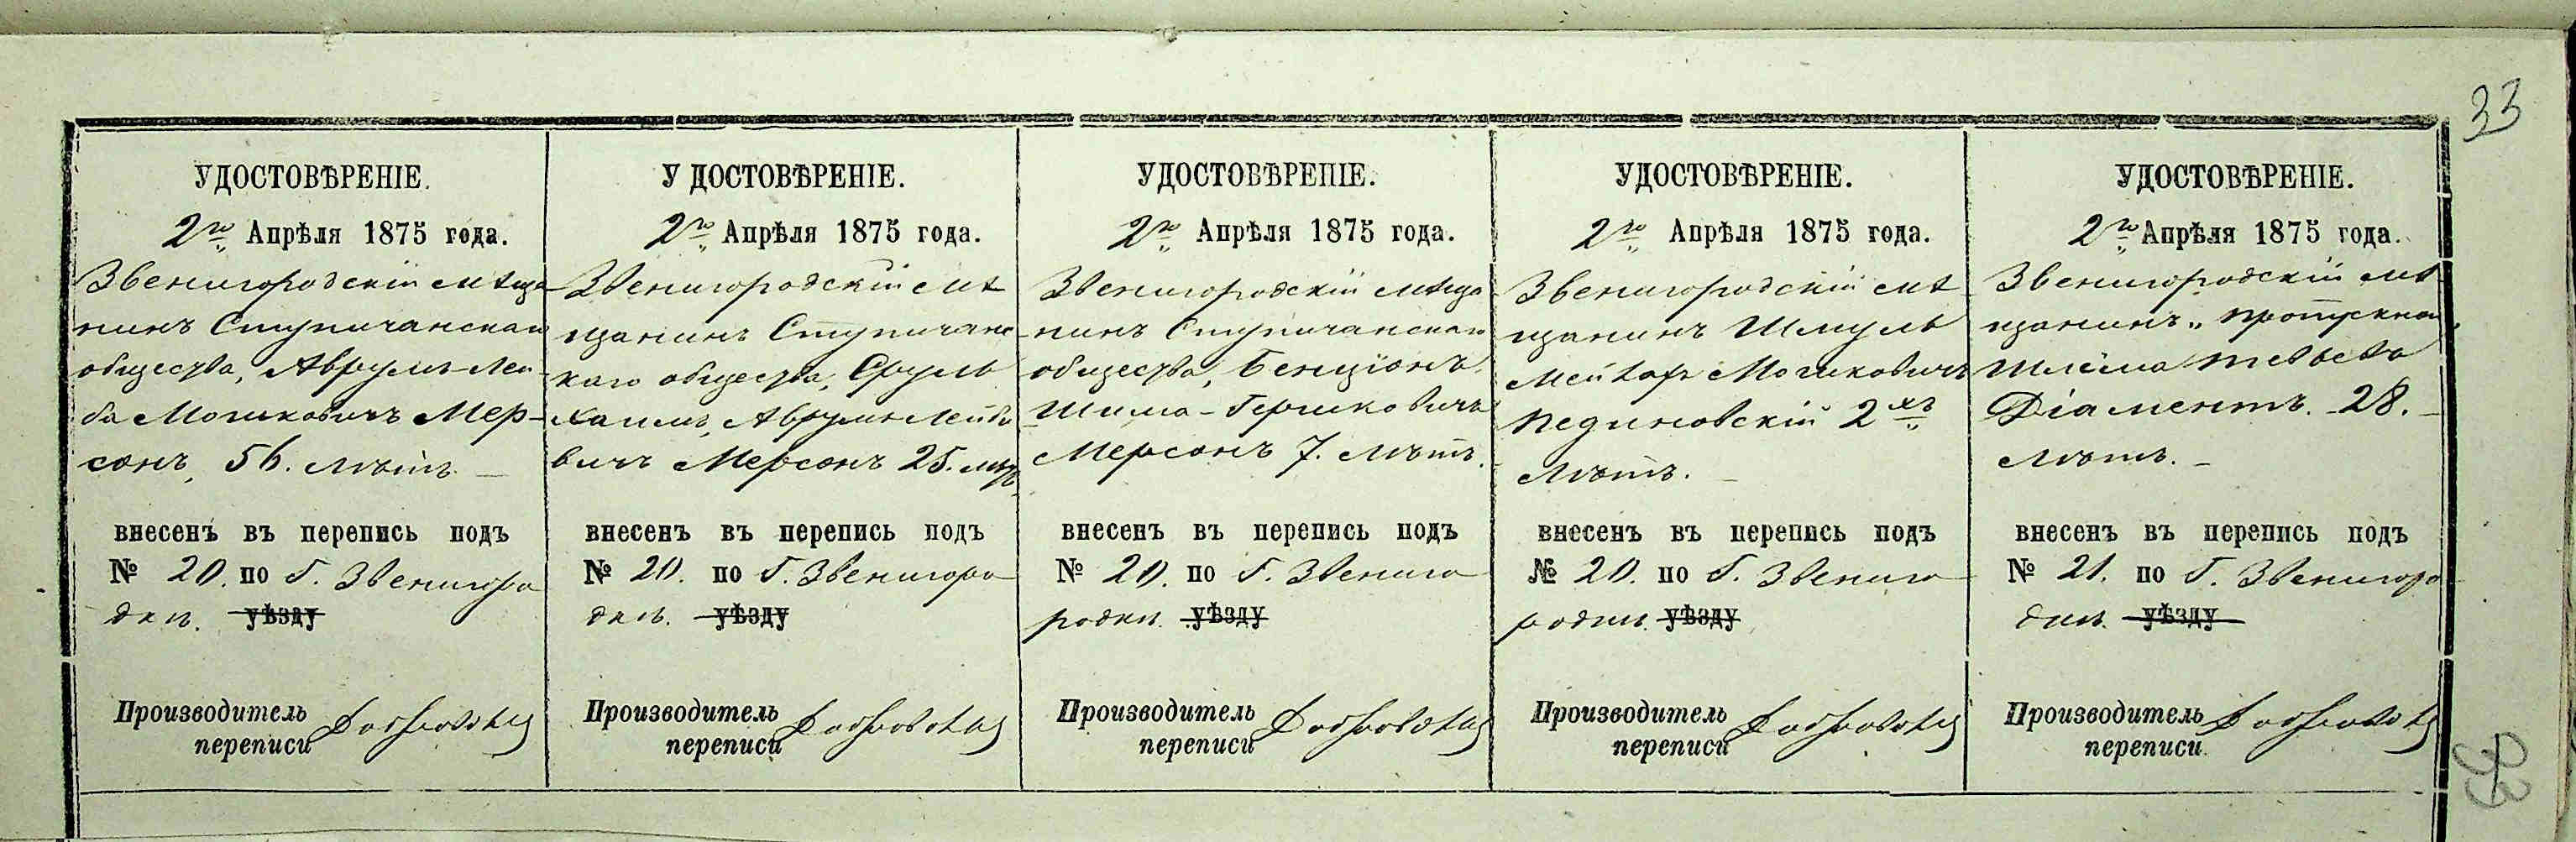 33
УДОСТОВѢРЕНІЕ.
2го Апрѣля 1875 года.
Звенигородскій мѣща
нинъ Ступичанскаго
общества, Аврумъ Лей
ба Мошковичъ Мер-
сонъ, 56. лѣтъ
внесенъ въ перепись подъ
№ 20. по Г. Звенигоро
дкѣ. уѣзду
Производитель
переписи
УДОСТОВѢРЕНІЕ.
2го Апрѣля 1875 года.
Звенигородскій мѣ
щанинъ Ступичанс
каго общества, Сруль
Хаимъ, Аврумъ Лейбо
вичъ Мерсонъ 25. лѣтъ
внесенъ въ перепись подъ
№ 20. по Г. Звенигоро
дкѣ. уѣзду
Производитель
переписи
УДОСТОВѢРЕНІЕ.
2го Апрѣля 1875 года.
Звенигородскій мѣща
нинъ Ступичанскаго
общества, Бенціонъ
Шима-Гершковичъ
Мерсонъ 7. лѣтъ.
внесенъ въ перепись подъ
№ 20. по Г. Звениго
родкѣ. уѣзду
Производитель
переписи
УДОСТОВѢРЕНІЕ.
2го Апрѣля 1875 года.
Звенигородскій мѣ
щанинъ Шмуль
Мошковичъ
2хъ
лѣтъ.
внесенъ въ перепись подъ
№ 20. по Г. Звениго
родкѣ. уѣзду
Производитель
переписи
УДОСТОВѢРЕНІЕ.
2го Апрѣля 1875 года.
Звенигородскій мѣ
щанинъ
Шлёма Тевьевъ
Діаментъ. 28.
лѣтъ.
внесенъ въ перепись подъ
№ 21. по Г. Звенигоро
дкѣ. уѣзду
Производитель
переписи